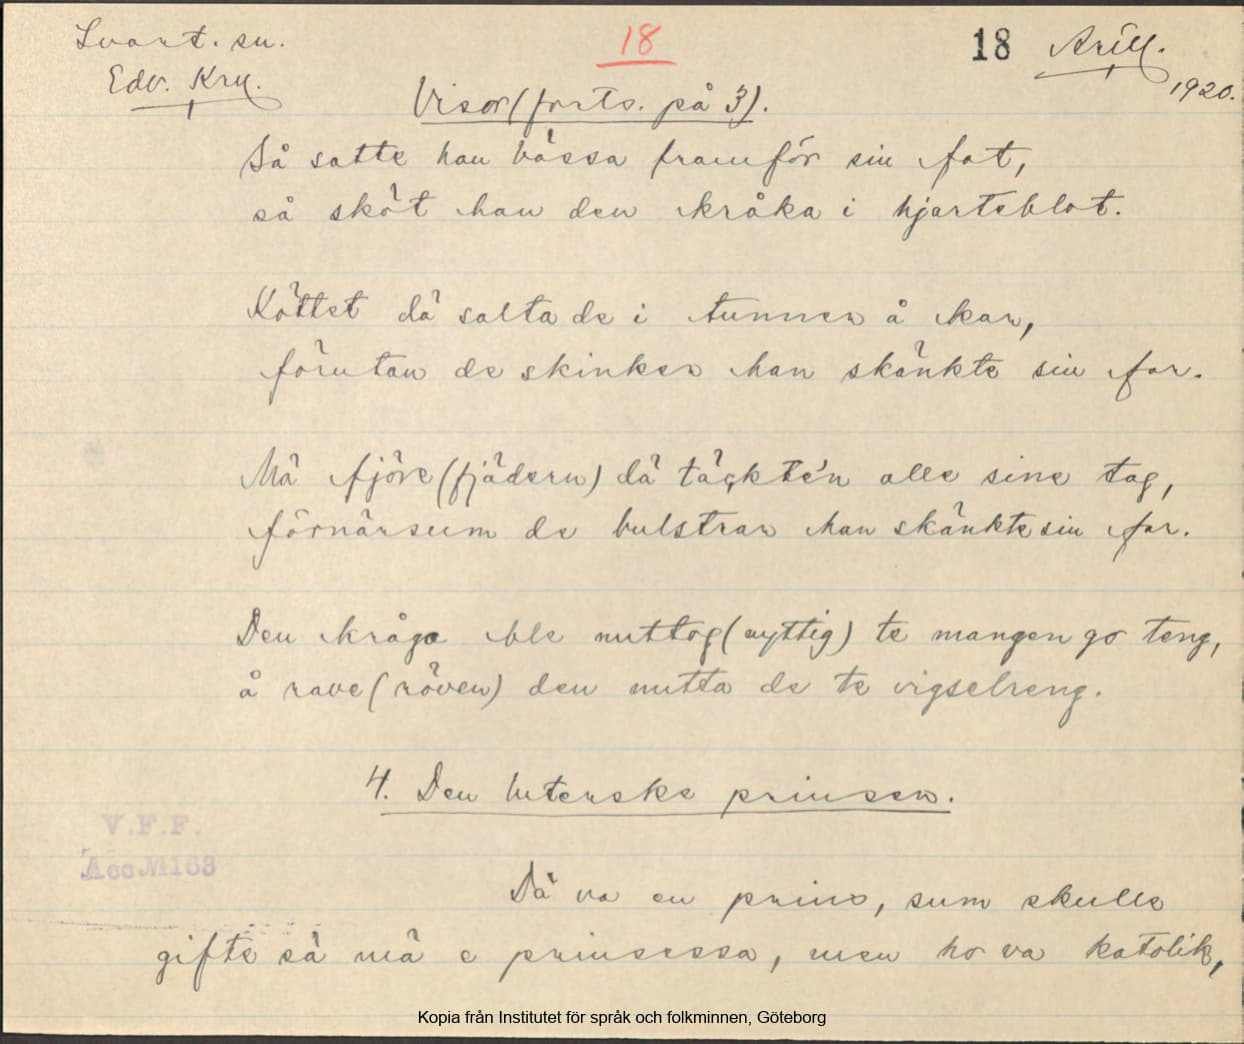 Svart. sn.
18
18 Arill.
Edv. Kru.
1920.
Visor (forts. på 3).
Så satte han bössa framför sin fot,
så sköt han den kråka i hjarteblot.
Köttet dä salta de i tunner å kar,
förutan de skinker han skänkte sin far.
Mä fjöre (fjädern) dä täckte'n alle sine tag,
förnärsum de bulstrar han skänkte sin far.
Den kråga ble nuttog (nyttig) te mangen go teng,
å rave (röven) den nutta de te vigselreng.
4. Den luterske prinsen.
V.F.F.
Acc M163
Dä va en prins, sum skulle
gifte sä mä e prinsessa, men ho va katolik,
Kopia från Institutet för språk och folkminnen, Göteborg